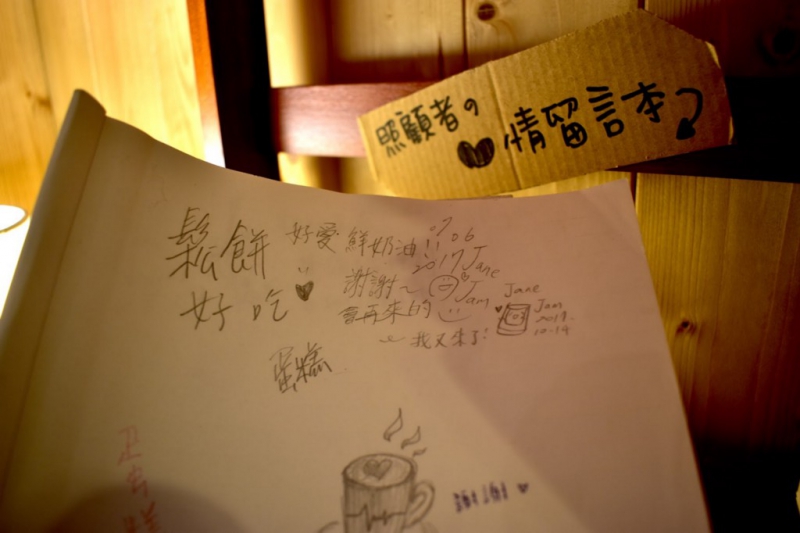 照顧者の
♥情留言本
鬆餅
好吃♥
好愛鮮奶油!!
07.06
2017 Jane
Jam
謝謝~
會再來的
Jane
Jam
2017.
10.14
我又來了!
蛋糕
謝謝♥